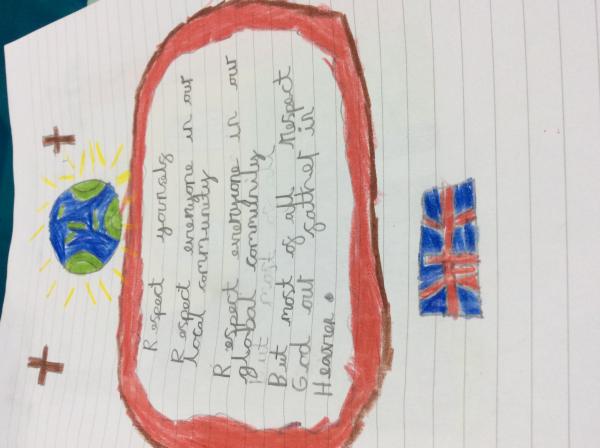 Respect yourself
Respect everyone in our
local community
Respect everyone in our
global community
But most of all
But most of all Respect
God our father in
Heaven.